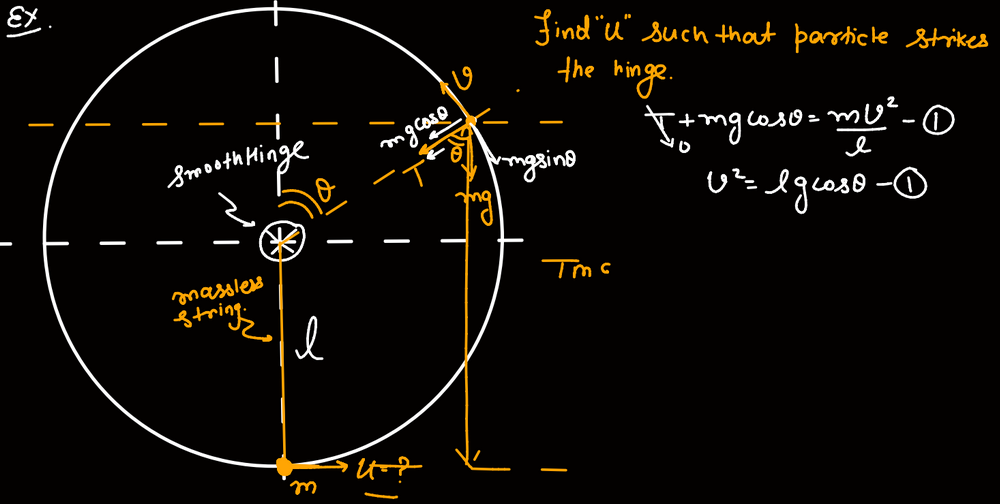 Ex.
Find "u" such that particle strikes
the hinge.
T + mgcosθ = mv²/l - ①
0
v² = lgcosθ - ①
v
mgcosθ
θ
T
mgsinθ
mg
Smooth Hinge
θ
Tmc
massless
string.
l
m
u = ?